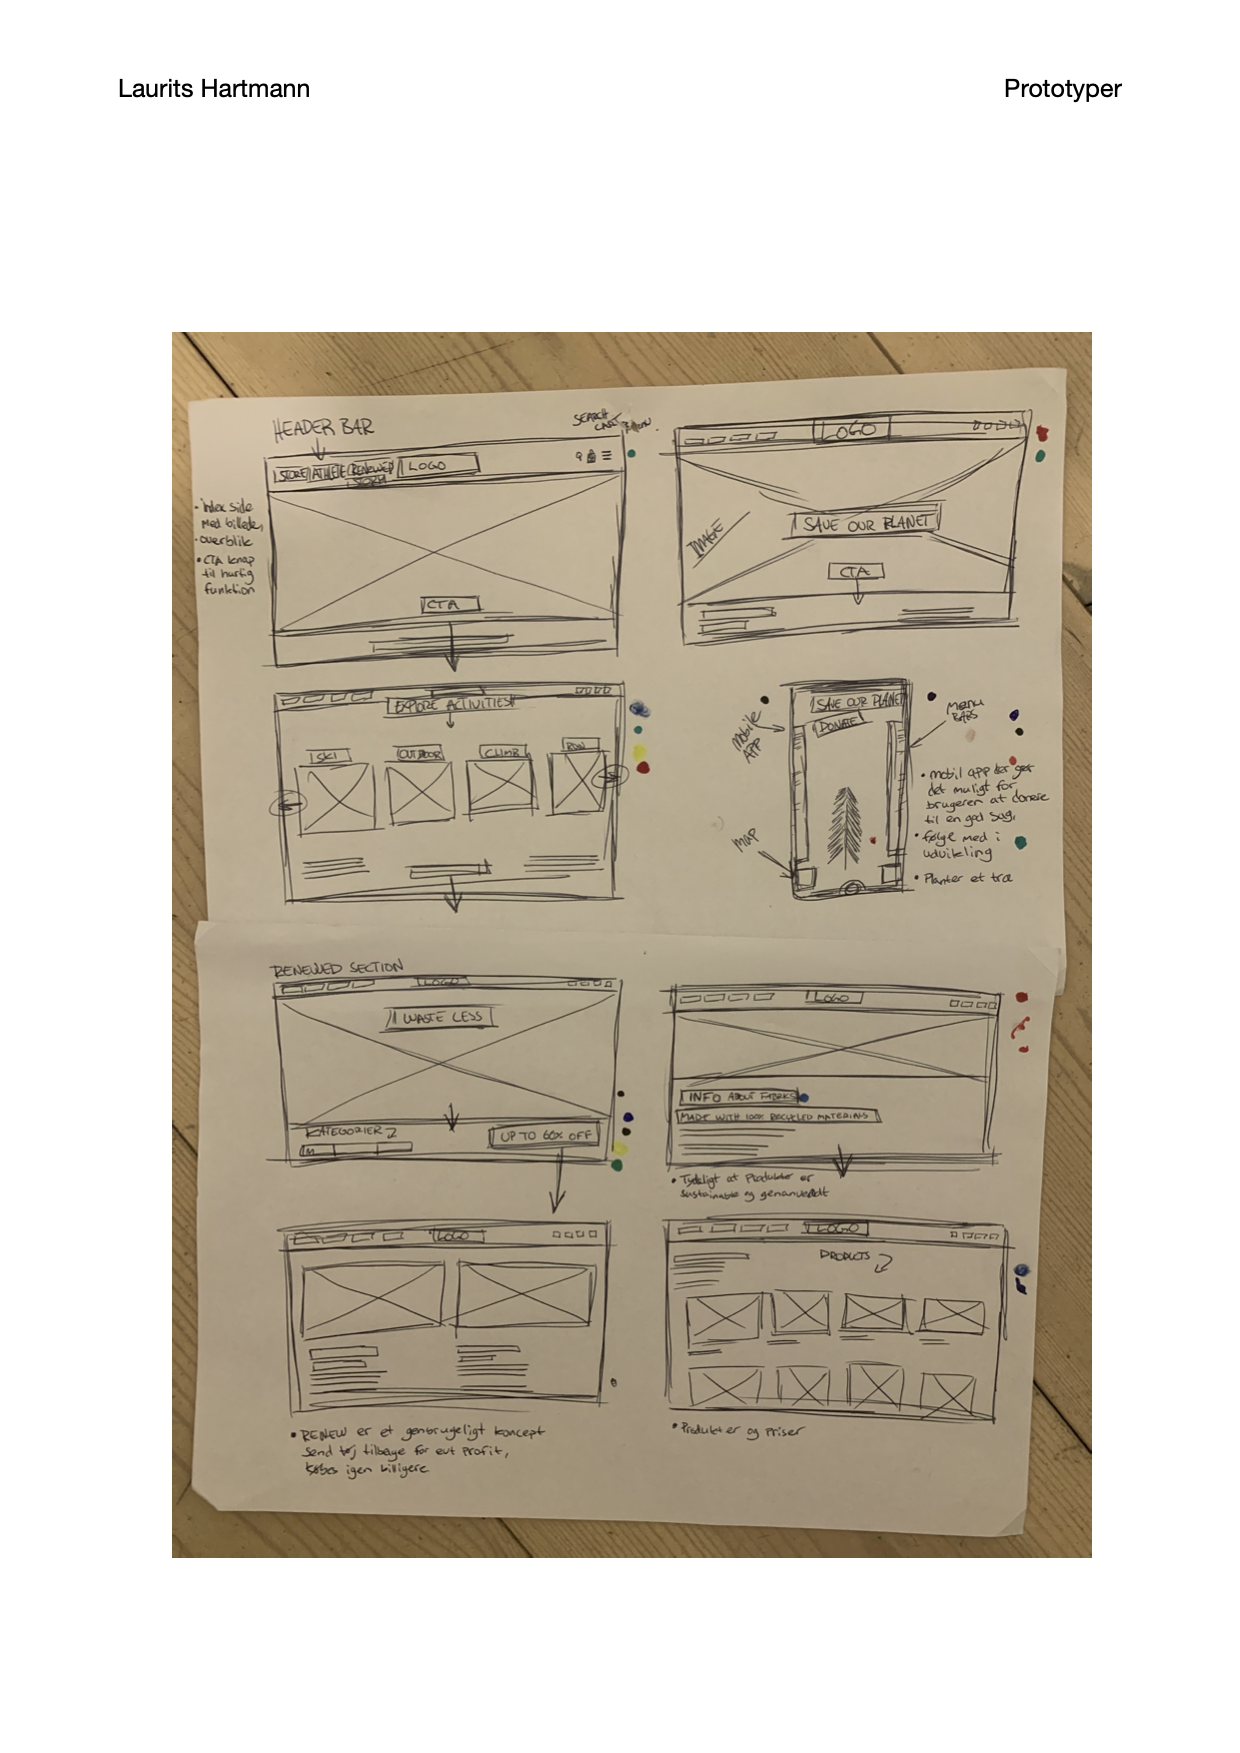 Laurits Hartmann
Prototyper
HEADER BAR
SEARCH
CART
STORE ATHLETE RENEWED LOGO
STORIES
• Index side
med billede,
• overblik
• CTA knap
til hurtig
funktion
CTA
LOGO
IMAGE
SAVE OUR PLANET
CTA
EXPLORE ACTIVITIES
SKI OUTDOOR CLIMB RUN
SAVE OUR PLANET
DONATE
MOBILE
APP
MENU
BARS
MAP
• mobil app der gør
det muligt for
brugeren at donere
til en god sag,
• følge med i
udvikling
• Planter et træ
RENEWED SECTION
LOGO
WASTE LESS
KATEGORIER
UP TO 60% OFF
LOGO
INFO ABOUT FABRICS
MADE WITH 100% RECYCLED MATERIALS
• Tydeligt at Produkter er
sustainable og genanvendt
LOGO
• RENEW er et genbrugeligt koncept
send tøj tilbage for evt profit,
købes igen billigere
LOGO
PRODUCTS
• Produkter og Priser